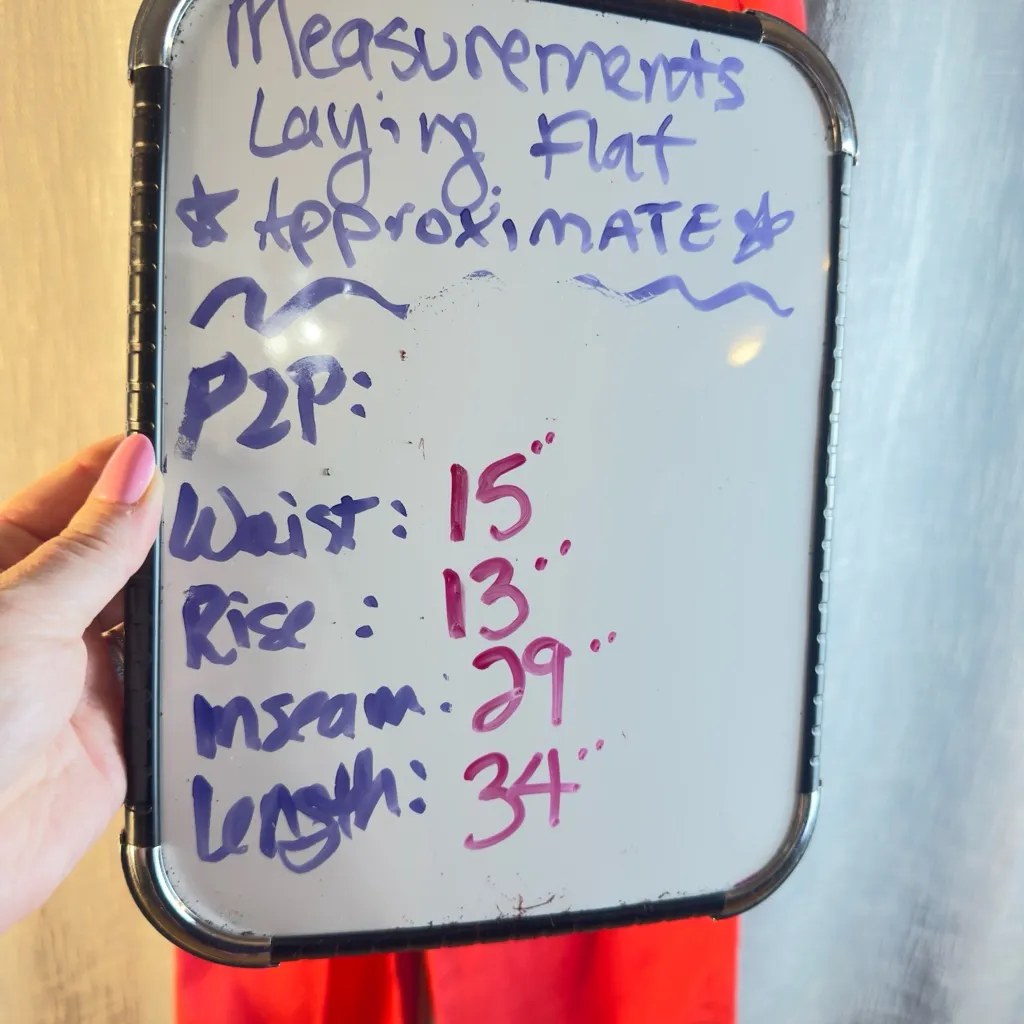 Measurements
Laying Flat
☆ ApproxiMATE ☆
P2P:
Waist: 15"
Rise : 13"
Inseam: 29"
Length: 34"